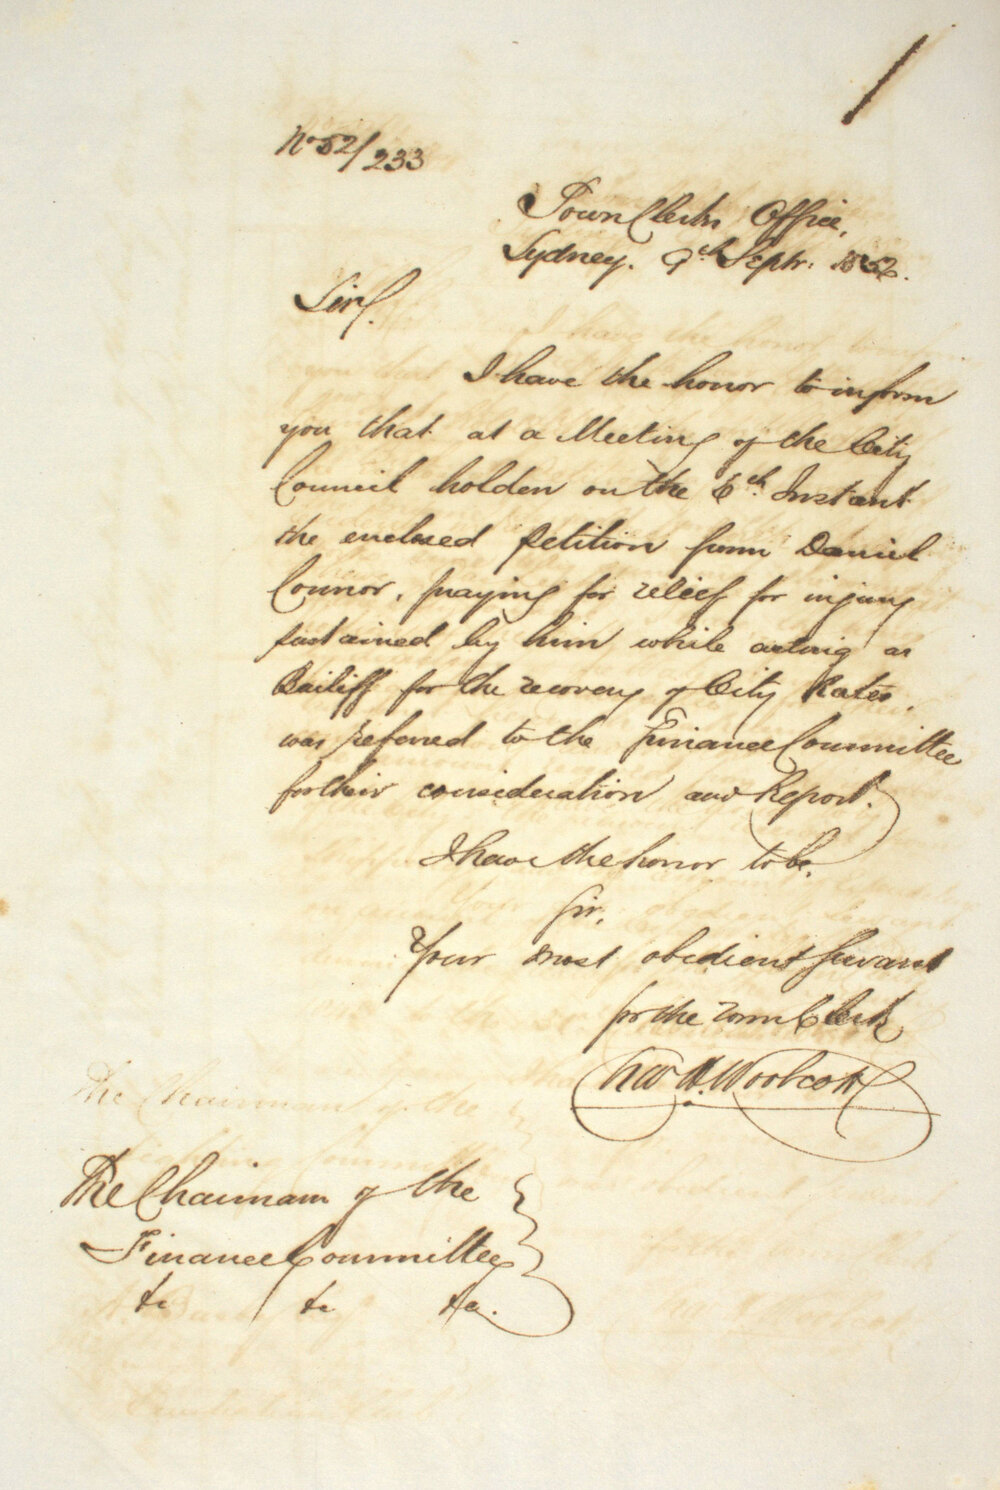 No 52/233
Town Clerks Office,
Sydney. 9th Septr: 1852.
Sir,
I have the honor to inform
you that at a Meeting of the City
Council holden on the 6th Instant
the enclosed petition from Daniel
Connor, praying for relief for injury
sustained by him while acting as
Bailiff for the recovery of City Rates,
was referred to the Finance Committee
for their consideration and Report.
I have the honor to be,
Sir,
Your most obedient Servant
for the Town Clerk
Woolcott
The Chairman of the
Finance Committee
&c &c &c.